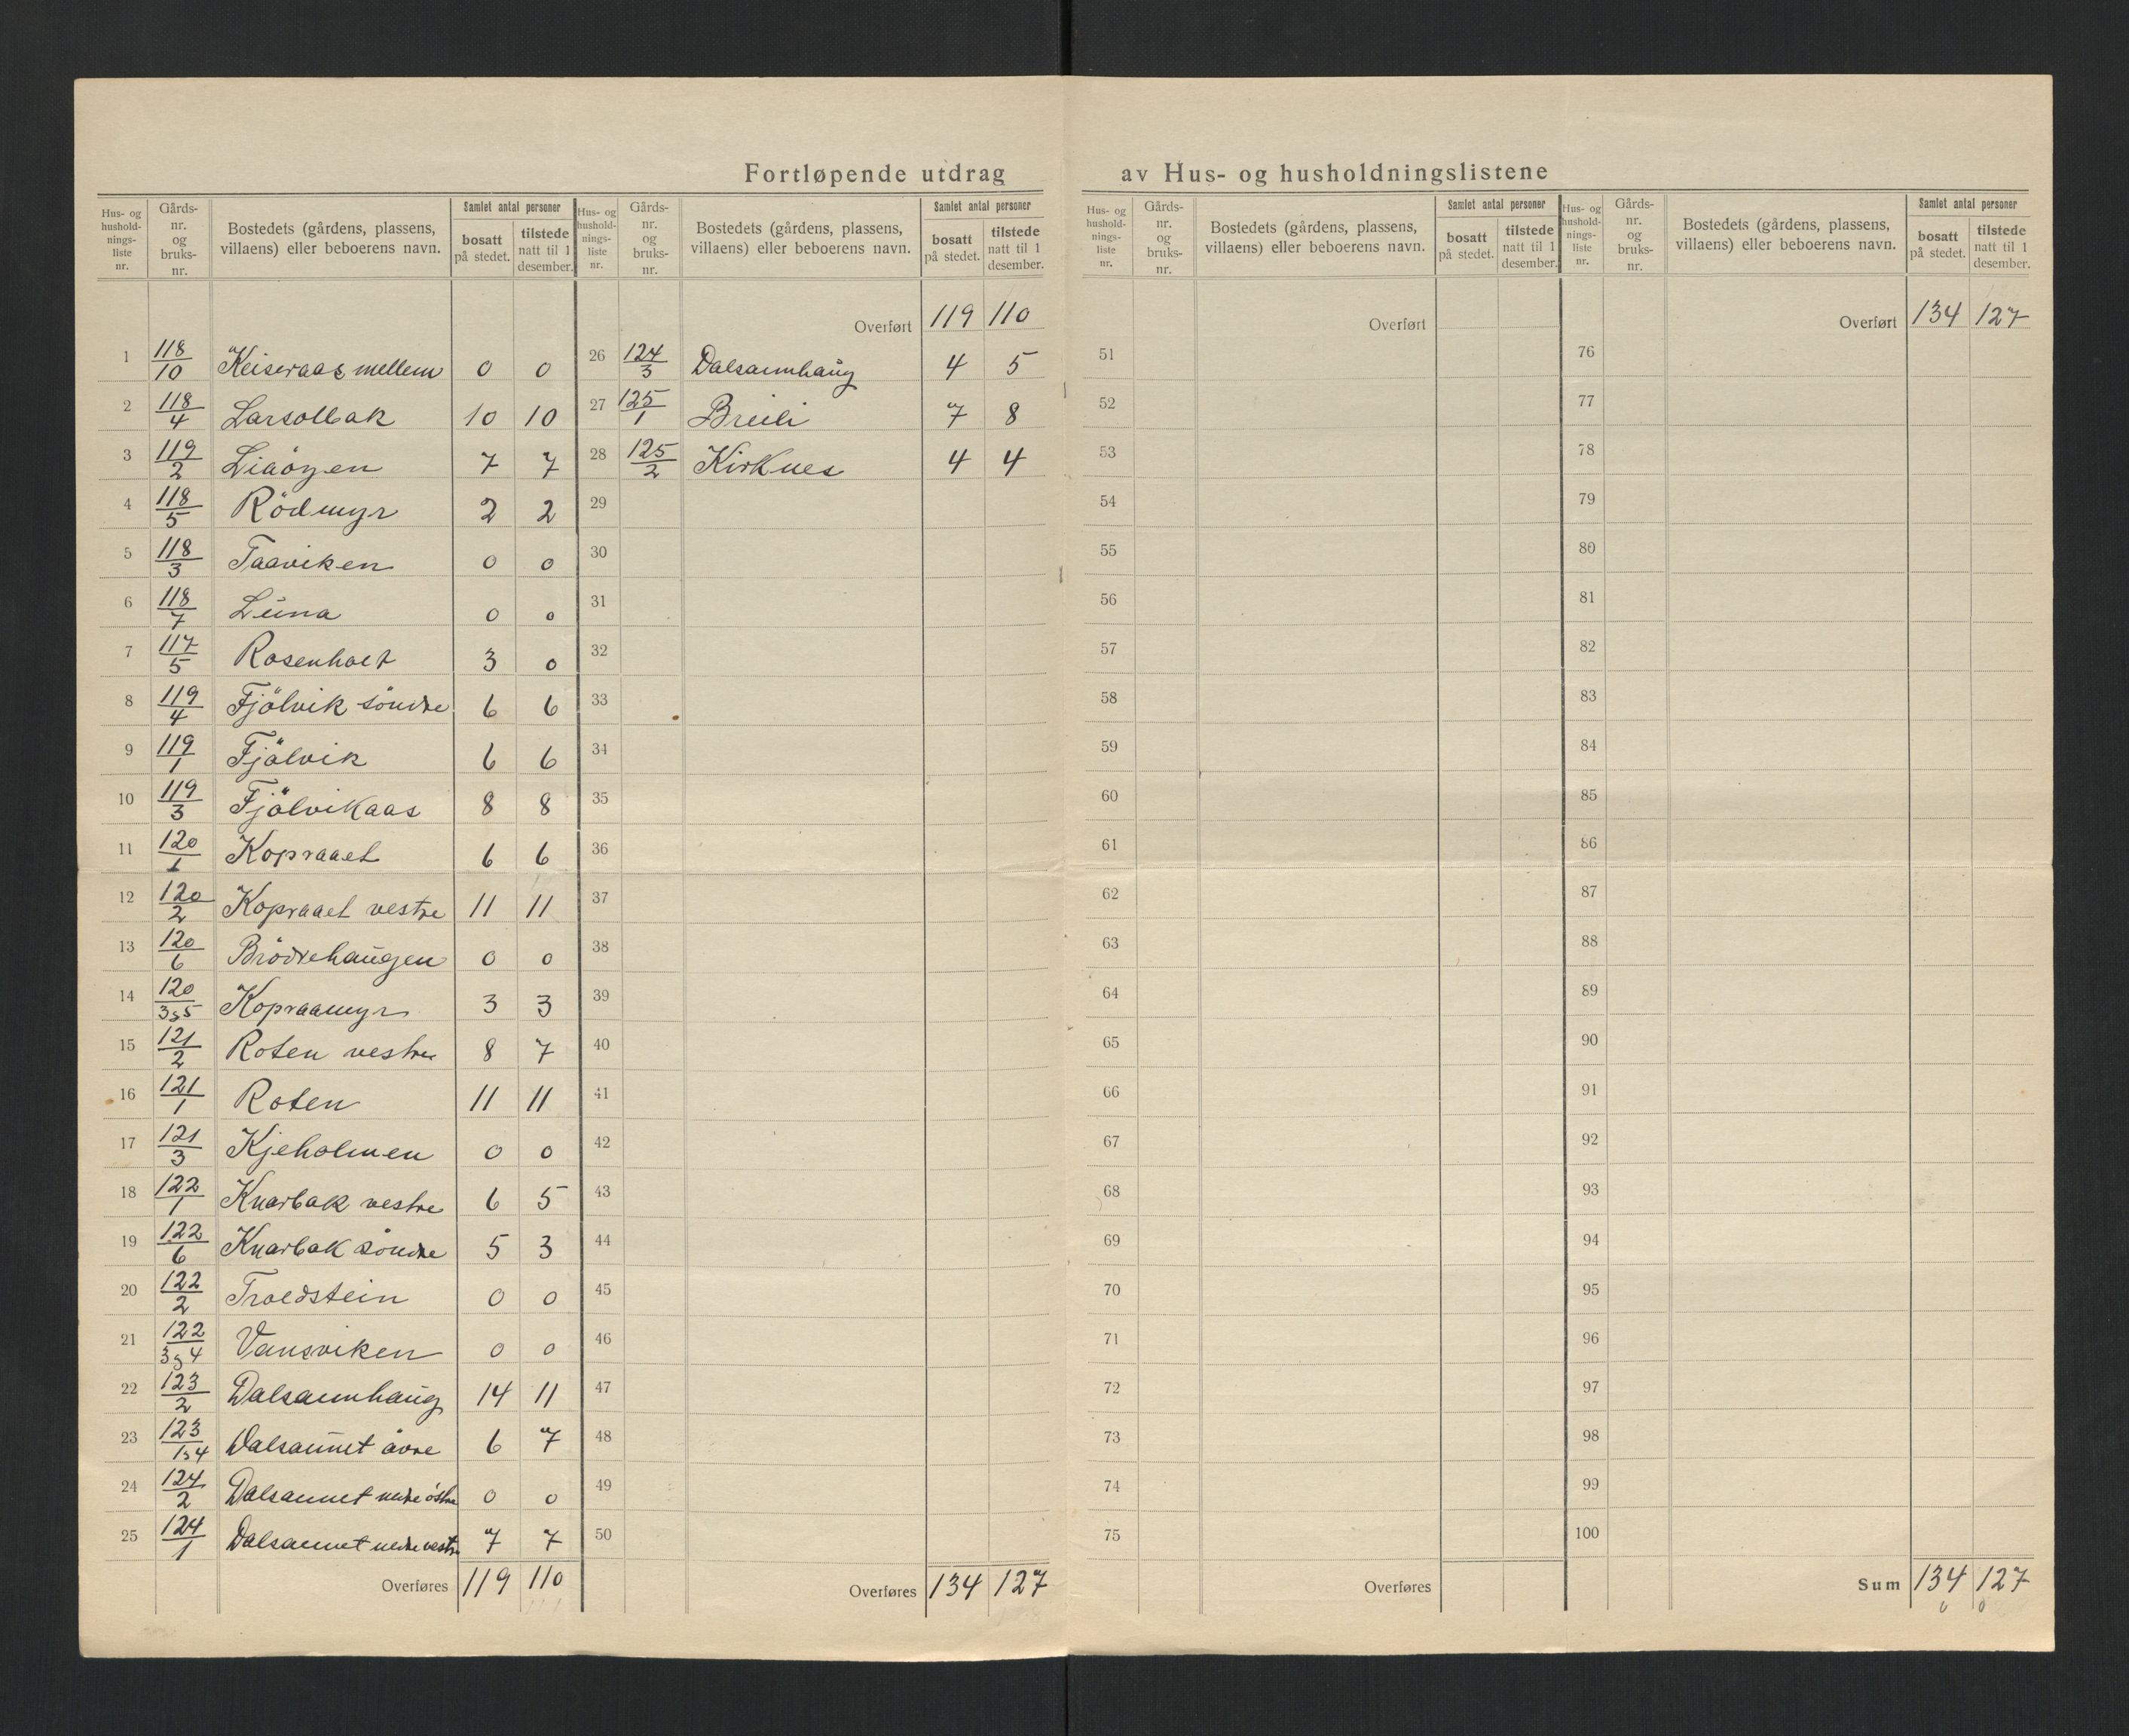 Fortløpende utdrag av Hus- og husholdningslistene
Hus- og hushold-nings-liste nr. Gårds-nr. og bruks-nr. Bostedets (gårdens, plassens, villaens) eller beboerens navn. Samlet antal personer bosatt på stedet. tilstede natt til 1 desember.
Hus- og hushold-nings-liste nr. Gårds-nr. og bruks-nr. Bostedets (gårdens, plassens, villaens) eller beboerens navn. Samlet antal personer bosatt på stedet. tilstede natt til 1 desember.
Hus- og hushold-nings-liste nr. Gårds-nr. og bruks-nr. Bostedets (gårdens, plassens, villaens) eller beboerens navn. Samlet antal personer bosatt på stedet. tilstede natt til 1 desember.
Hus- og hushold-nings-liste nr. Gårds-nr. og bruks-nr. Bostedets (gårdens, plassens, villaens) eller beboerens navn. Samlet antal personer bosatt på stedet. tilstede natt til 1 desember.
1 118/10 Keiseraas mellem 0 0
2 118/4 Larsolbak 10 10
3 119/2 Liaöyen 7 7
4 118/5 Rödmyr 2 2
5 118/3 Taaviken 0 0
6 118/7 Luna 0 0
7 117/5 Rosenholt 3 0
8 119/4 Fjölvik söndre 6 6
9 119/1 Fjölvik 6 6
10 119/3 Fjölvikaas 8 8
11 120/1 Kopraaet 6 6
12 120/2 Kopraaet vestre 11 11
13 120/6 Brödrehaugen 0 0
14 120/3,5 Kopraamyr 3 3
15 121/2 Roten vestre 8 7
16 121/1 Roten 11 11
17 121/3 Kjeholmen 0 0
18 122/1 Knarbak vestre 6 5
19 122/6 Knarbak söndre 5 3
20 122/2 Troldstein 0 0
21 122/3,4 Vansviken 0 0
22 123/2 Dalsaunhaug 14 11
23 123/1,4 Dalsaunet övre 6 7
24 124/2 Dalsaunet nedre östre 0 0
25 124/1 Dalsaunet nedre vestre 7 7
Overføres 119 110
Overført 119 110
26 124/3 Dalsaunhaug 4 5
27 125/1 Breili 7 8
28 125/2 Kirknes 4 4
29
30
31
32
33
34
35
36
37
38
39
40
41
42
43
44
45
46
47
48
49
50
Overføres 134 127
Overført
51
52
53
54
55
56
57
58
59
60
61
62
63
64
65
66
67
68
69
70
71
72
73
74
75
Overføres
Overført 134 127
76
77
78
79
80
81
82
83
84
85
86
87
88
89
90
91
92
93
94
95
96
97
98
99
100
Sum 134 127